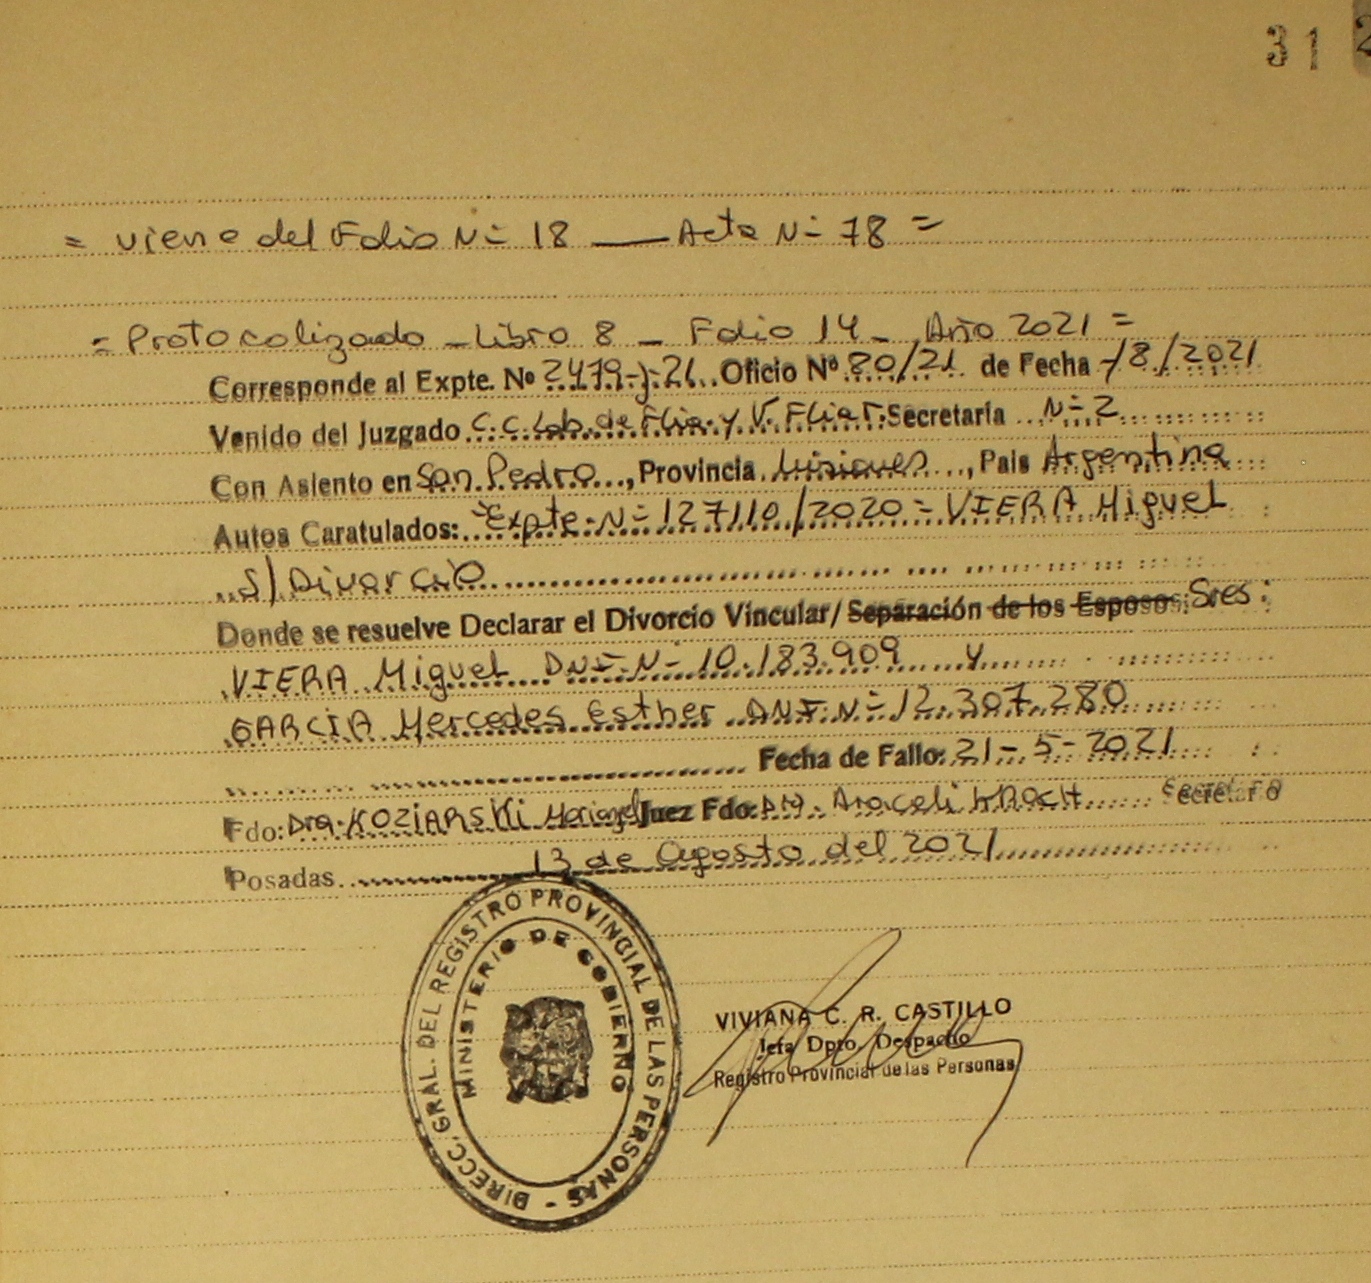 31 2
= viene del Folio N= 18 — Acta N= 78 =
= Protocolizado - Libro 8 - Folio 14 - Año 2021 =
Corresponde al Expte. Nº 2479-J-21. Oficio Nº 20/21 de Fecha -/8/2021
Venido del Juzgado C.C. Lab. de Flia. y V. Fliar. Secretaria N= 2
Con Asiento en San Pedro, Provincia Misiones, Pais Argentina
Autos Caratulados: "Expte. N= 127110/2020 = VIERA Miguel
s/Divorcio
Donde se resuelve Declarar el Divorcio Vincular/ Separación de los Esposos: Sres:
VIERA Miguel DNI. N= 10.183.909 y
GARCIA Mercedes Esther DNI. N= 12.307.280
Fecha de Fallo: 21-5-2021
Fdo: Dra. KOZIARSKI Juez Fdo: Dra. Araceli Secretario
Posadas 13 de agosto del 2021
DIRECC. GRAL. DEL REGISTRO PROVINCIAL DE LAS PERSONAS -
MINISTERIO DE GOBIERNO
VIVIANA C. R. CASTILLO
Jefa Dpto. Despacho
Registro Provincial de las Personas